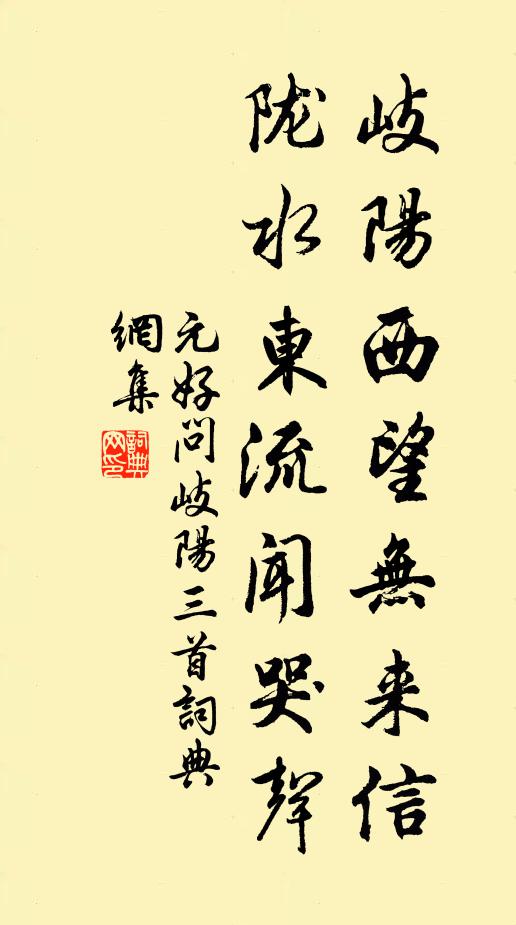 岐陽西望無来信
陇水東流闻哭聲
元好问岐陽三首詞典
網集
詞典
网印